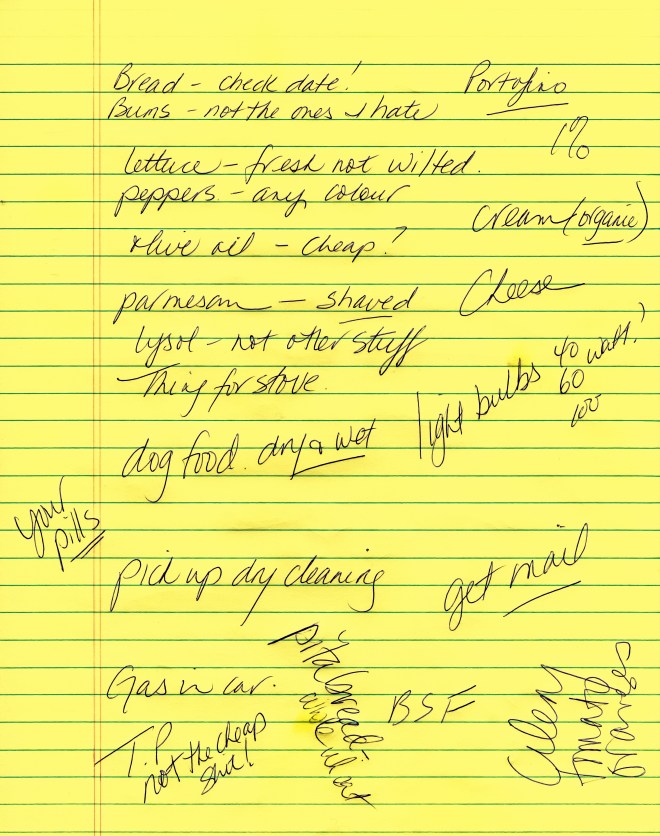 Bread - check date!
Buns - not the ones I hate
Portofino
1%
lettuce - fresh not wilted.
peppers - any colour
cream (organic)
olive oil - cheap?
parmesan - shaved
Cheese
lysol - not other stuff
Thing for stove.
light bulbs 40 watt?
60
100
dog food. dry & wet
your
pills
pick up dry cleaning
get mail
Gas in car.
pita bread -
whole wheat
BSF
Celery
tomato
oranges
T.P.
not the cheap